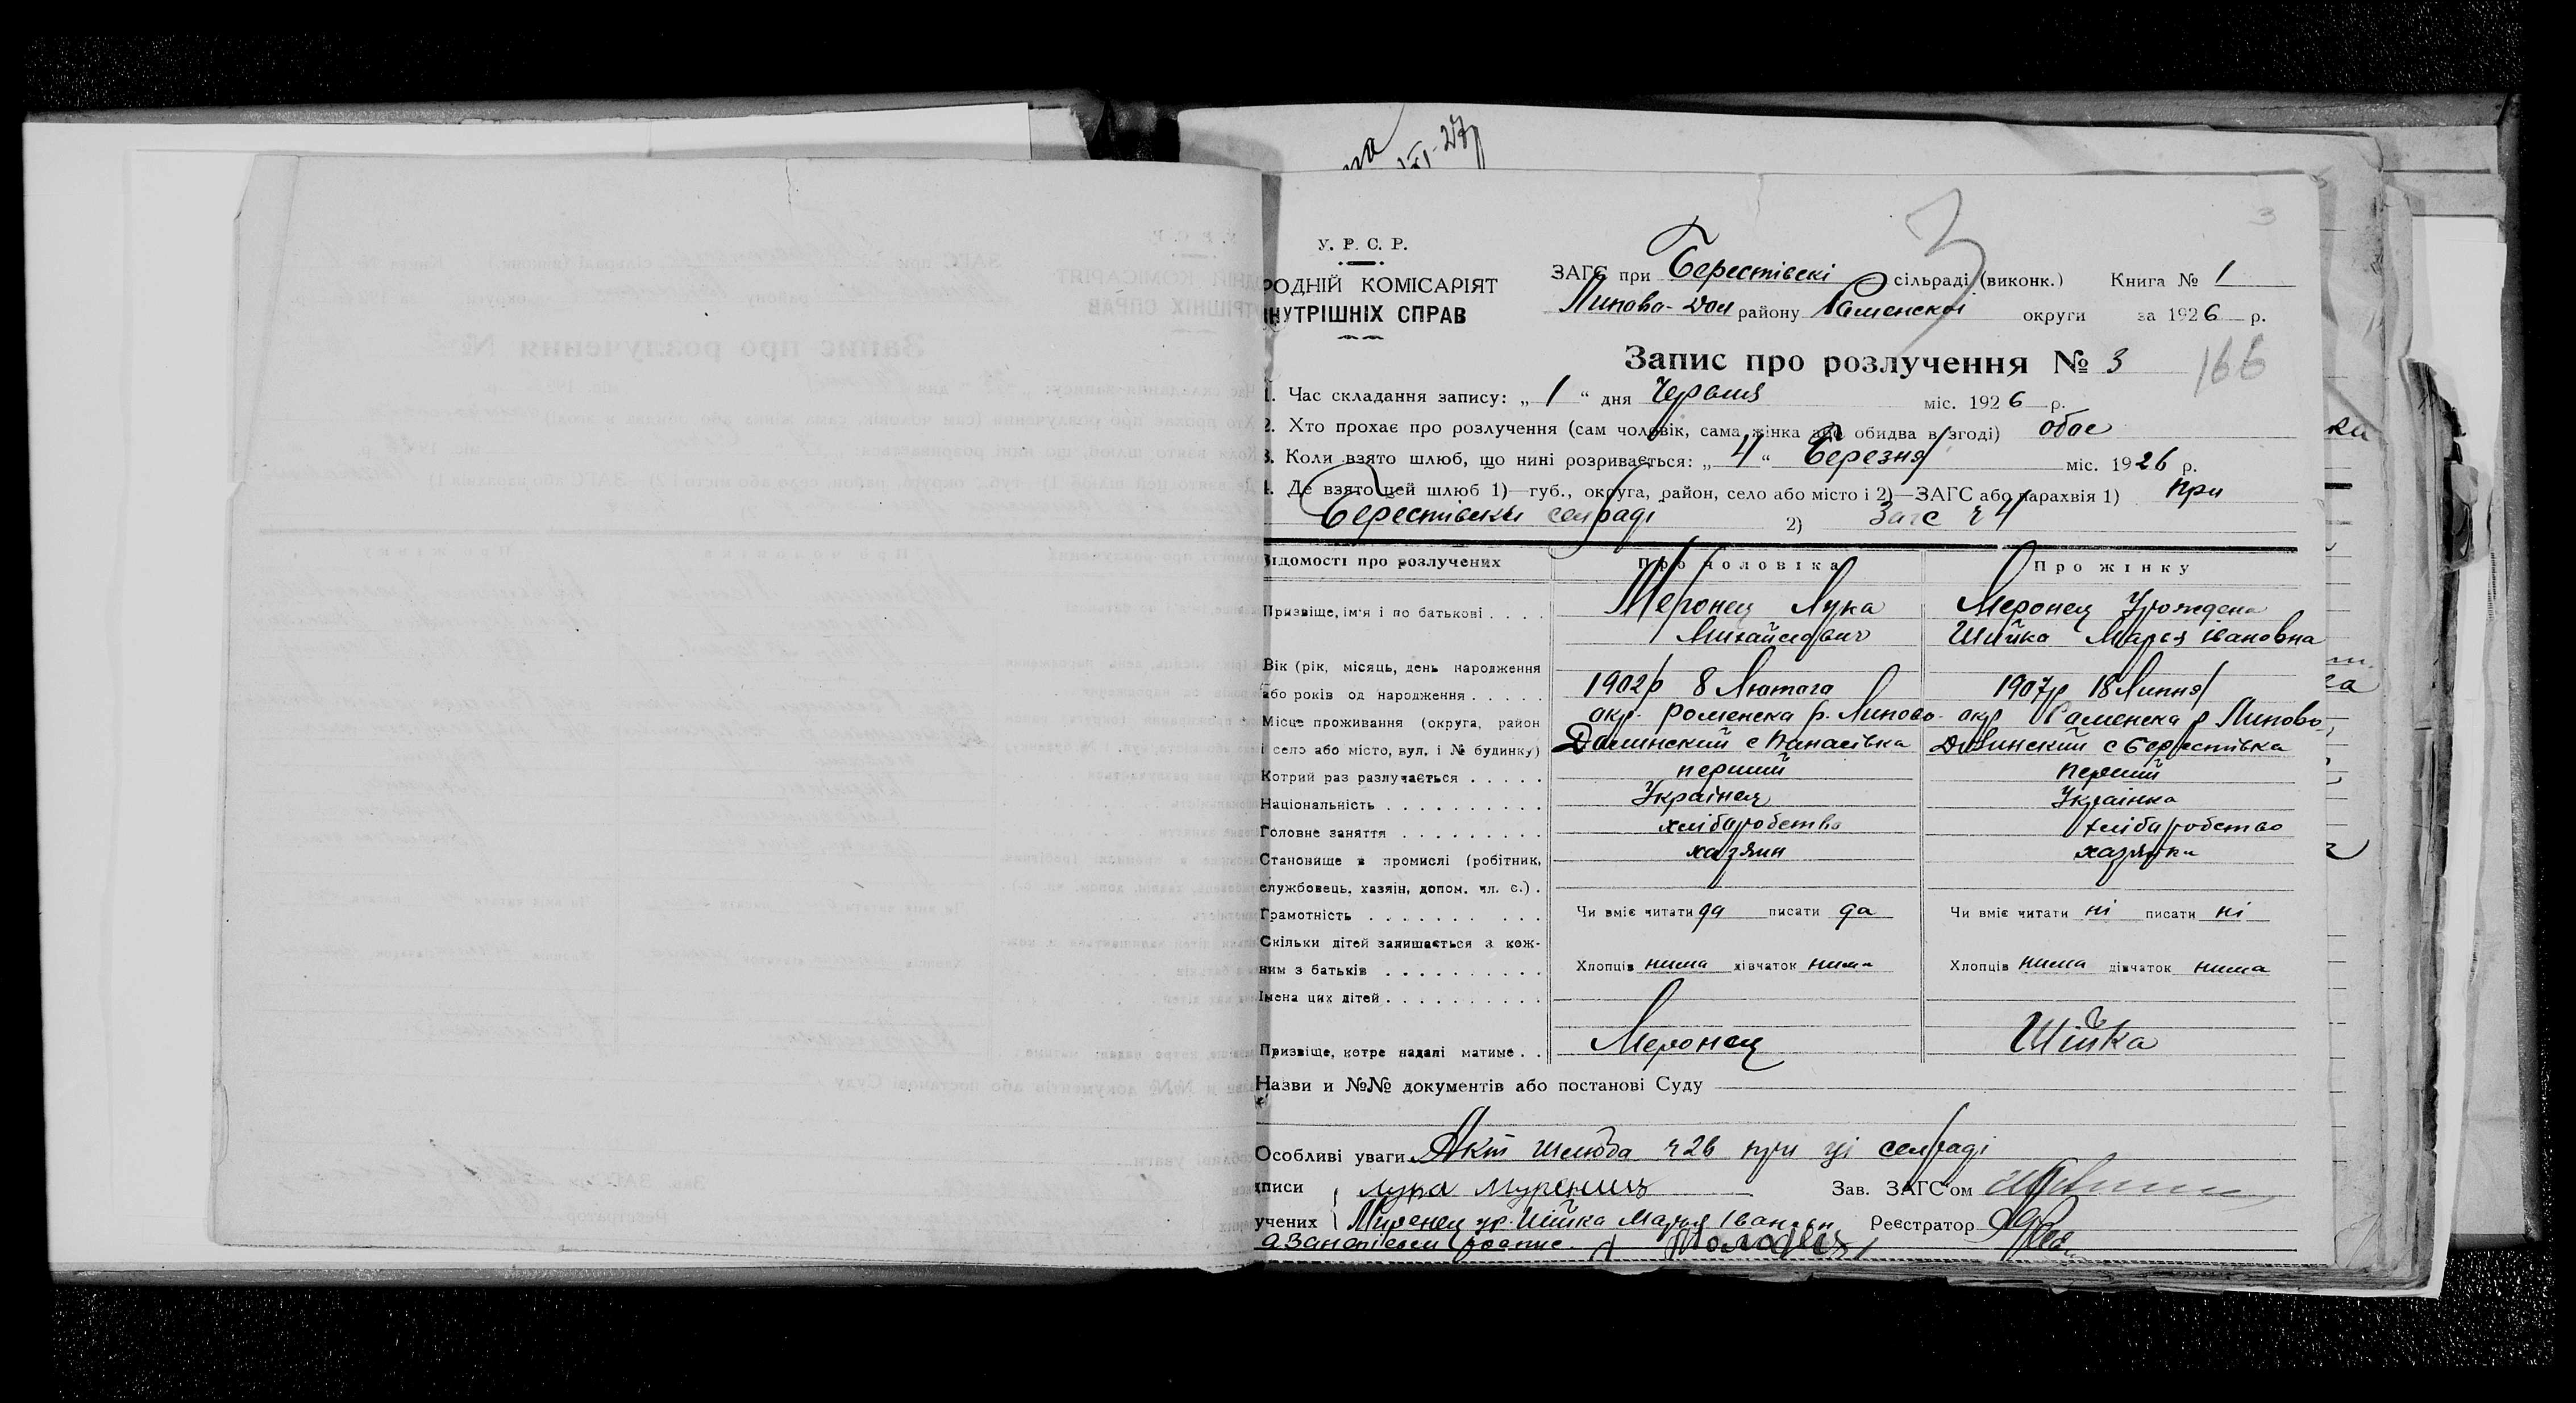 3
У. Р. С. Р.
РОДНІЙ КОМІСАРІЯТ
НУТРІШНІХ СПРАВ
ЗАГС при Берестівскі сільраді (виконк.) Книга № 1
Липово-Дол району Раменскоі округи за 1926 р.
Запис про розлучення № 3
166
1. Час складання запису: „ 1 “ дня Червня міс. 1926 р.
2. Хто прохає про розлучення (сам чоловік, сама жінка або обидва в згоді) обое
3. Коли взято шлюб, що нині розривається: „ 4 “ Березня міс. 1926 р.
4. Де взято цей шлюб 1)—губ., округа, район, село або місто і 2)—ЗАГС або парахвія 1) при
Берестівскі селраді 2) Загс ч 4
Відомості про розлучених Про чоловіка Про жінку
Призвіще, ім'я і по батькові . . . . Меронец Лука Меронец Урождена
Михайлович Шийка Марья івановна
Вік (рік, місяць, день народження
або років од народження . . . . . 1902р 8 Лютого 1907р 18 Липня
Місце проживання (округа, район окр. Роменска р. Липово- окр Раменска р Липово-
і село або місто, вул. і № будинку) Долинский с Панасівка Долинский с Берестівка
Котрий раз разлучається . . . . . перший перший
Національність . . . . . . . . . . Українец Українка
Головне заняття . . . . . . . . . хлібаробство хлібаробство
Становище в промислі (робітник, хазяин хазяйка
службовець, хазяін, допом. чл. с.) .
Грамотність . . . . . . . . . . Чи вміє читати да писати да Чи вміє читати ні писати ні
Скільки дітей залишається з кож-
ним з батьків . . . . . . . . . . Хлопців нима дівчаток нима Хлопців нима дівчаток нима
Імена цих дітей . . . . . . . . . .
Призвіще, котре надалі матиме . . Меронец Шийка
Назви и №№ документів або постанові Суду
Особливі уваги Акт шлюба ч 26 при ці селраді
дписи Лука Муренець Зав. ЗАГС'ом
учених Миренец ур. Шийка Марья Івановн Реєстратор